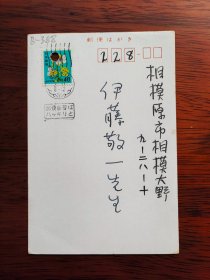 B-368
郵便はがき
228
相模原市相模大野
九-二八-十
伊藤敬一先生